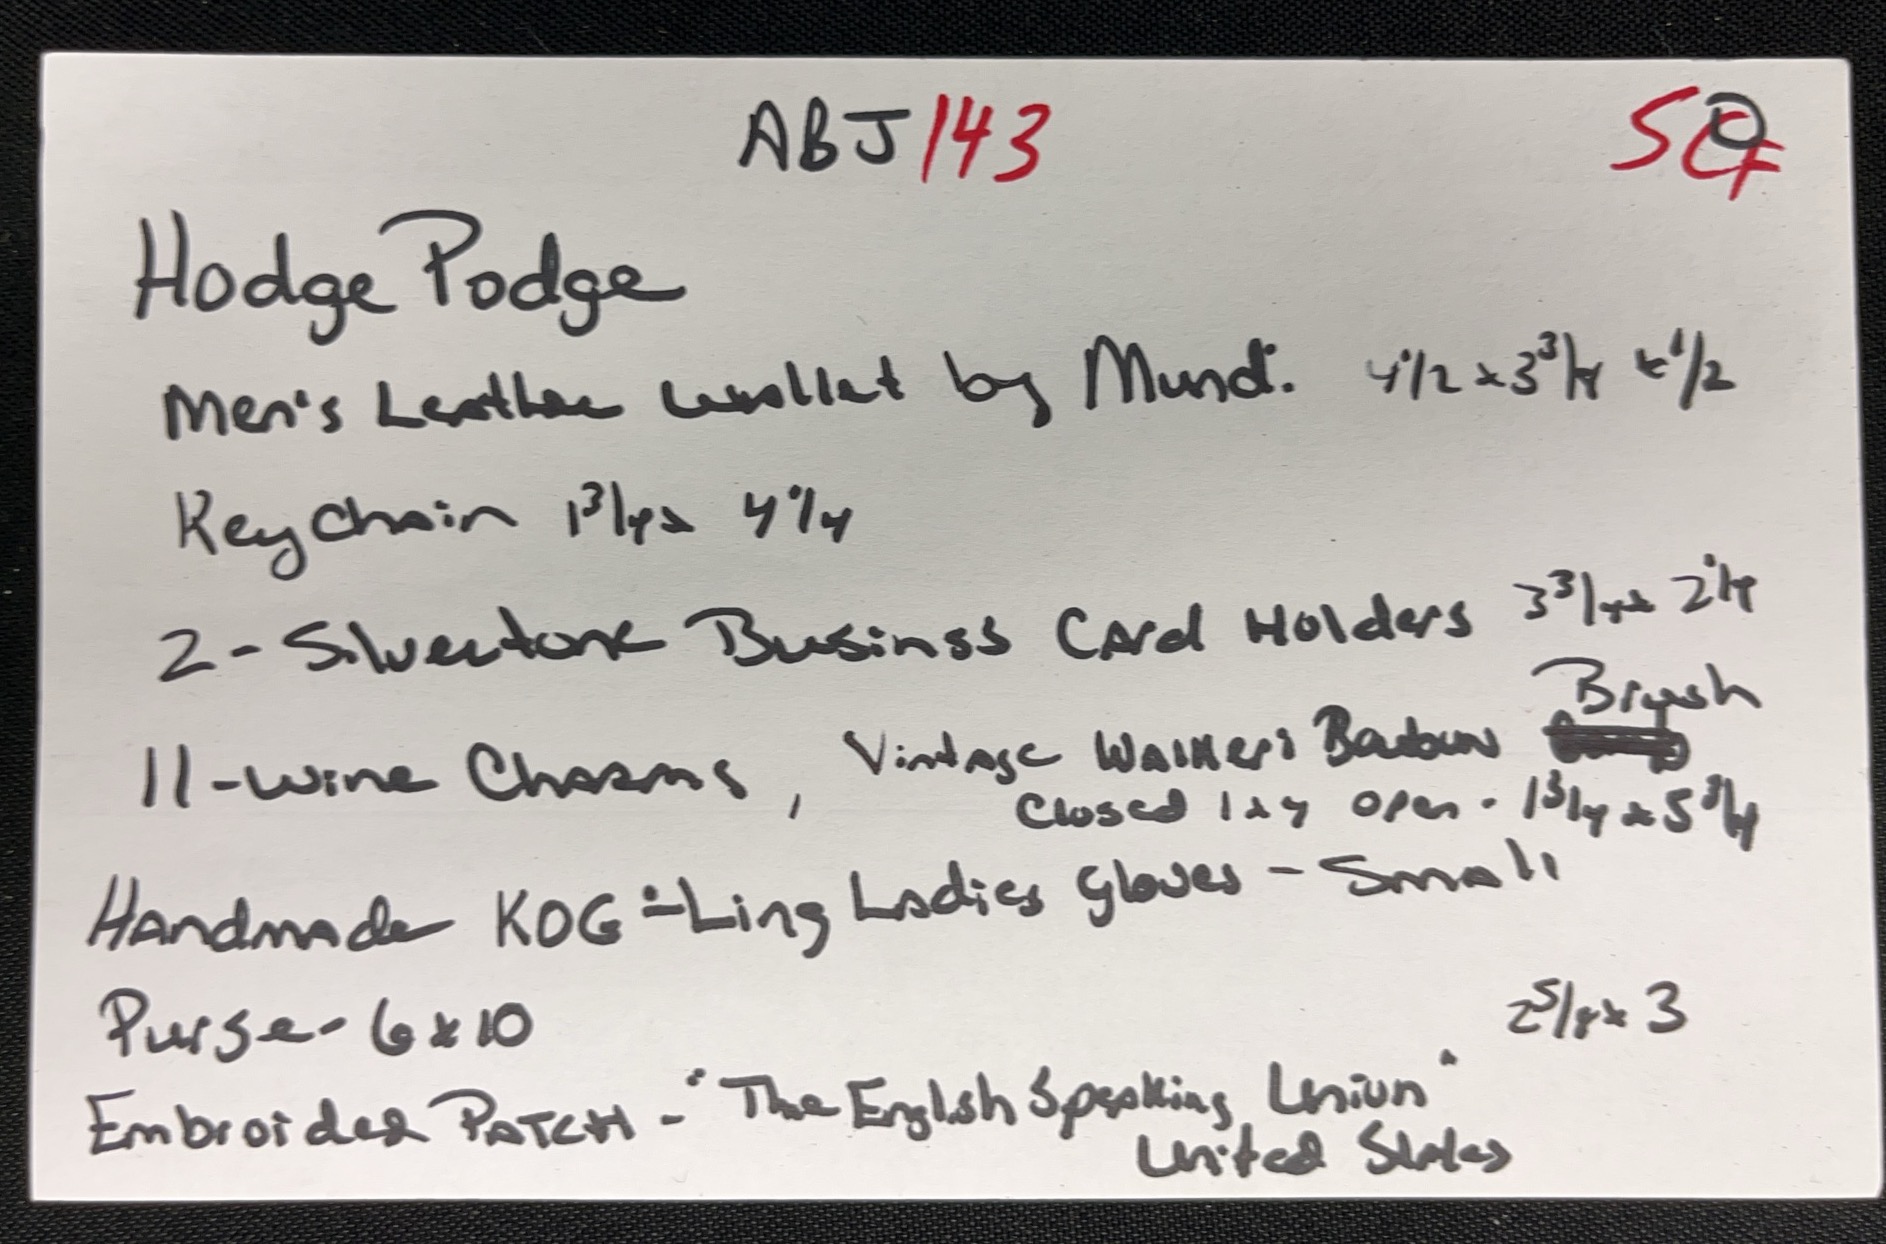 ABJ/143
Hodge Podge
Men's Leather Wallet by Mundi 4 1/2 x 3 3/4 x 1/2
Key Chain 1 3/4 x 4 1/4
2 - Silvertone Businss Card Holders 3 3/4 x 2 1/4
11 - Wine Charms, Vintage Walkers Bourbon Brush
Closed 1 x 4 open - 1 3/4 x 5 3/4
Handmade KOG-Ling Ladies gloves - Small
Purse - 6 x 10
2 5/8 x 3
Embroided Patch - "The English Speaking Union"
United States